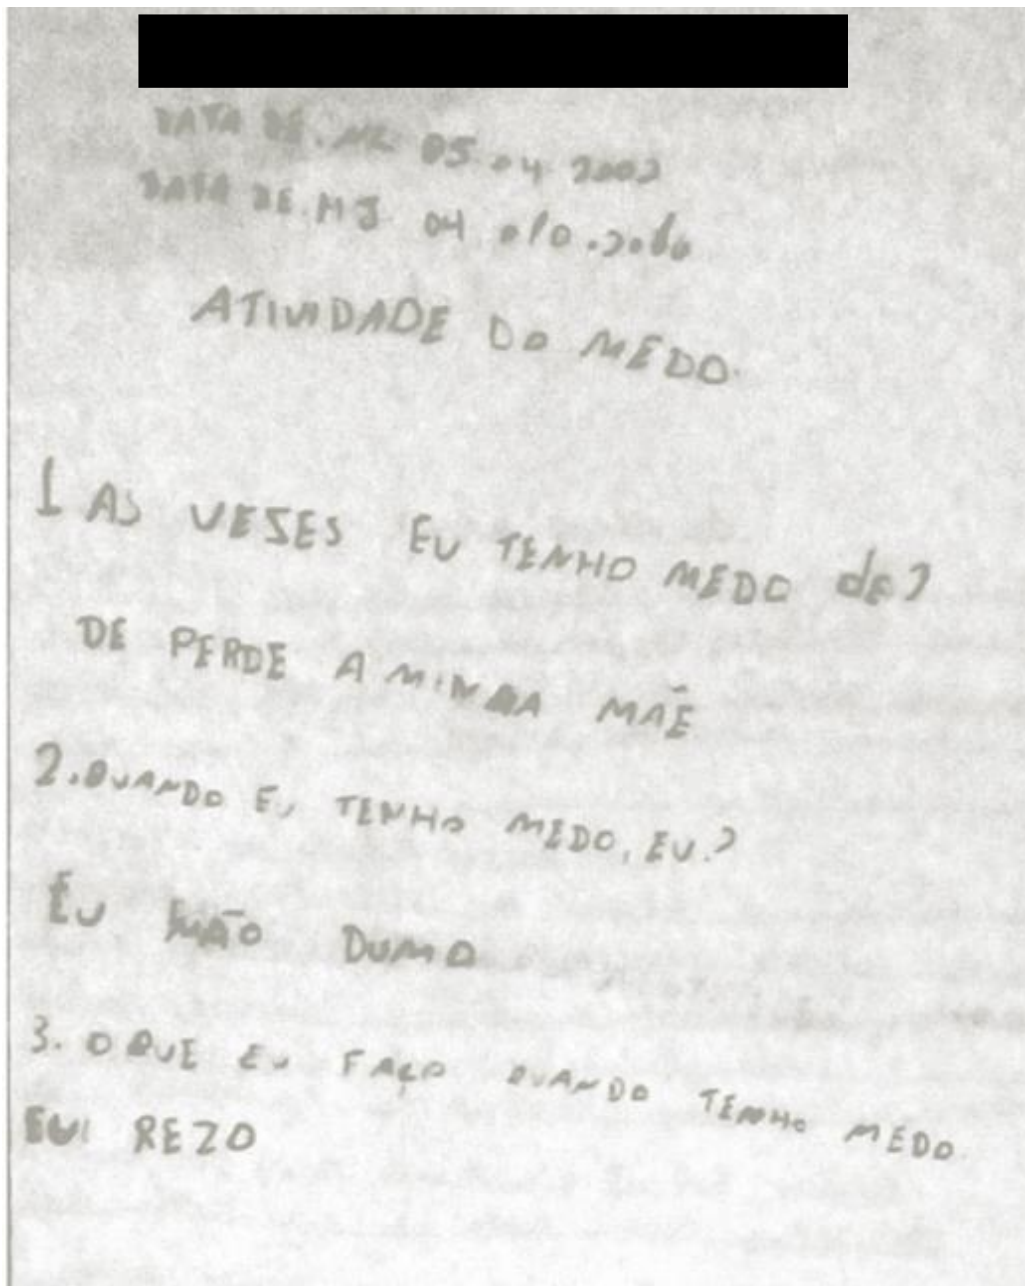 DATA DE. 05.04 2002
DATA DE. HJ 04
ATIVIDADE DO MEDO.
1 AS VESES EU TENHO MEDO de?
DE PERDE A MINHA MÃE
2. QUANDO EU TENHO MEDO, EU.?
EU NÃO DUMO
3. O QUE EU FAÇO QUANDO TENHO MEDO.
EUI REZO